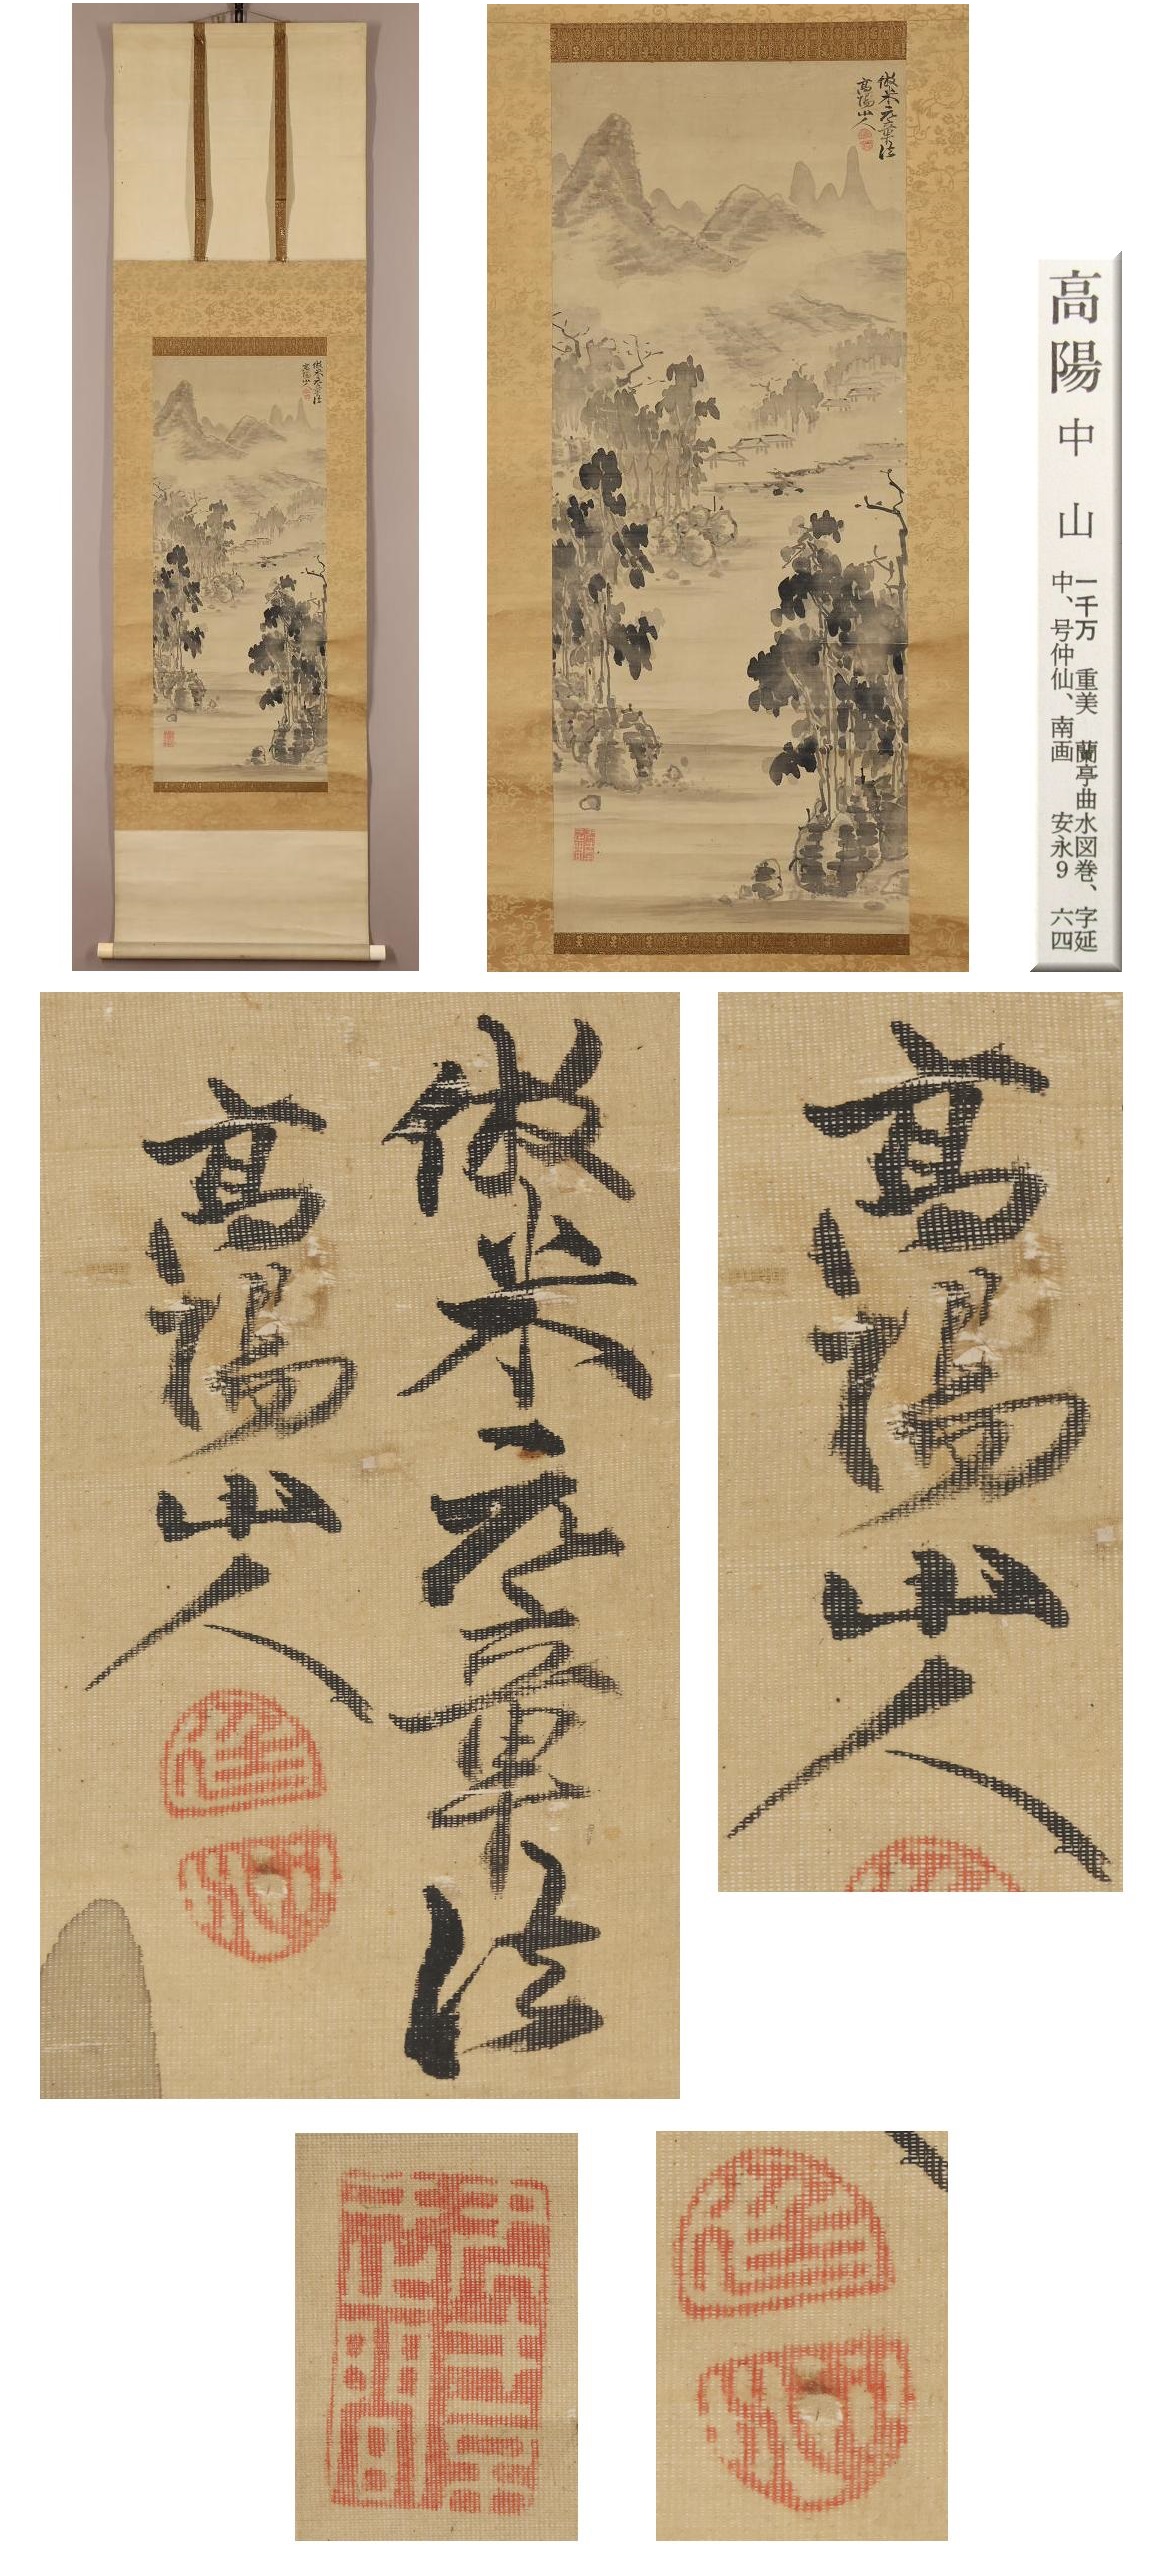 倣米元章法
高陽山人
倣米元章法
高陽山人
高陽 中山
一千万 重美 蘭亭曲水図巻、字延
中、号仲仙、南画 安永9 六四
倣米元章法
高陽山人
高陽山人